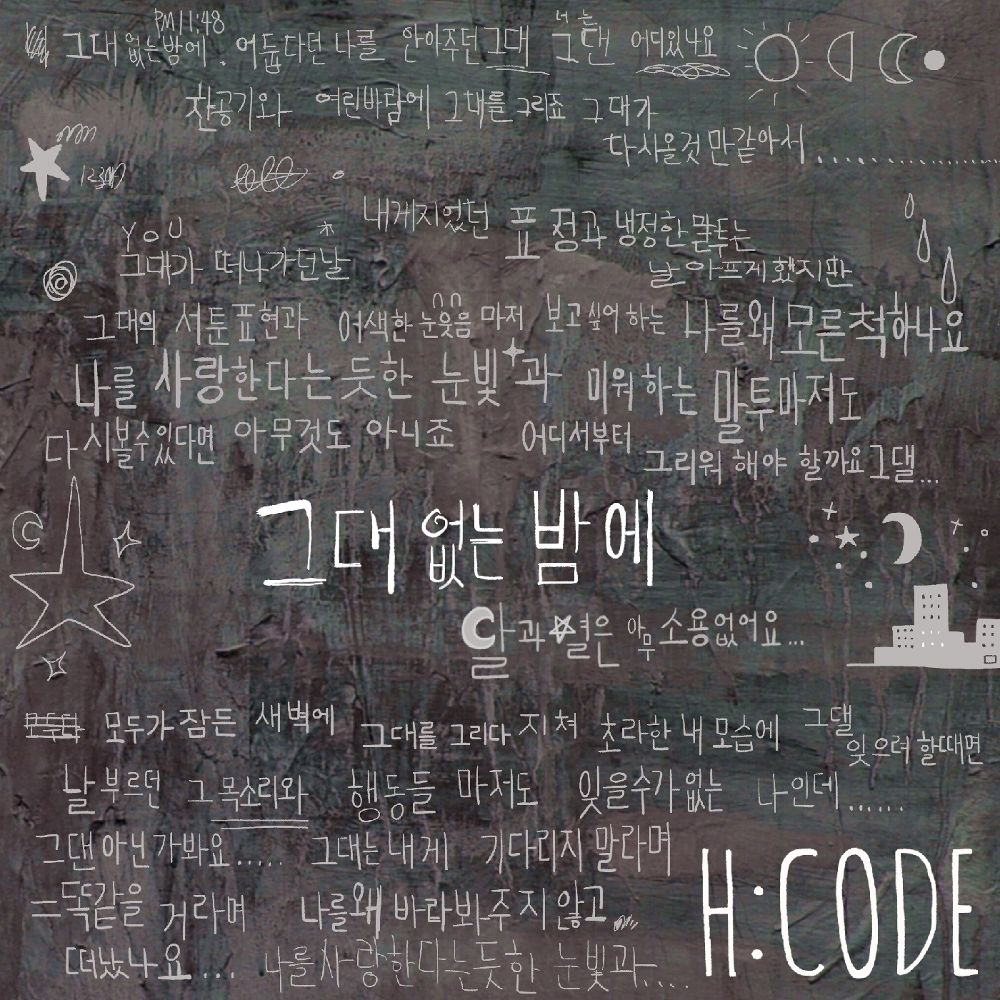 PM 11:48
그대 없는 밤에. 어둡다던 나를 안아주던 그대 그댄 어디있나요
너는
찬공기와 여린바람에 그대를 그리죠 그대가
다시올것만같아서..............
내게지었던 표정과 냉정한 말투는
YOU
그대가 떠나가던날 날 아프게했지만
그대의 서툰표현과 어색한눈웃음마저 보고싶어하는 나를왜모른척하나요
나를 사랑한다는듯한 눈빛과 미워하는 말투마저도
다시볼수있다면 아무것도 아니죠 어디서부터
그리워 해야 할까요그댈...
그대 없는 밤에
달과 별은 아무 소용없어요...
모두가 잠든 새벽에 그대를 그리다 지쳐 초라한 내 모습에 그댈
잊으려 할때면
날부르던 그 목소리와 행동들 마저도 잊을수가없는 나인데......
그댄아닌가봐요..... 그대는내게 기다리지 말라며
똑같을 거라며 나를왜 바라봐주지 않고
떠났나요... 나를사랑한다는듯한 눈빛과.....
H:CODE